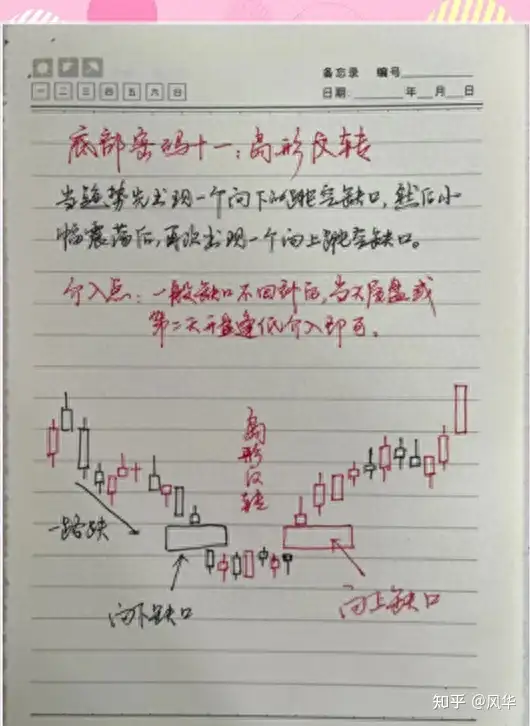 备忘录 编号
一 二 三 四 五 六 日
日期: 年 月 日
底部密码十一:岛形反转
当趋势先出现一个向下的跳空缺口,然后小
幅震荡后,再次出现一个向上跳空缺口。
介入点:一般缺口不回补后,当天尾盘或
第二天开盘逢低介入即可。
岛形反转
一路跌
向下缺口
向上缺口
知乎 @风华